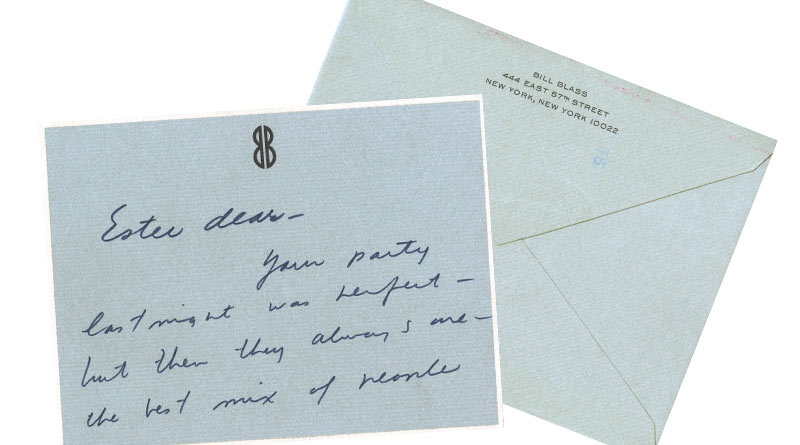 BILL BLASS
444 EAST 57TH STREET
NEW YORK, NEW YORK 10022
BB
Estee dear—
Your party
last night was perfect —
but then they always are —
the best mix of people